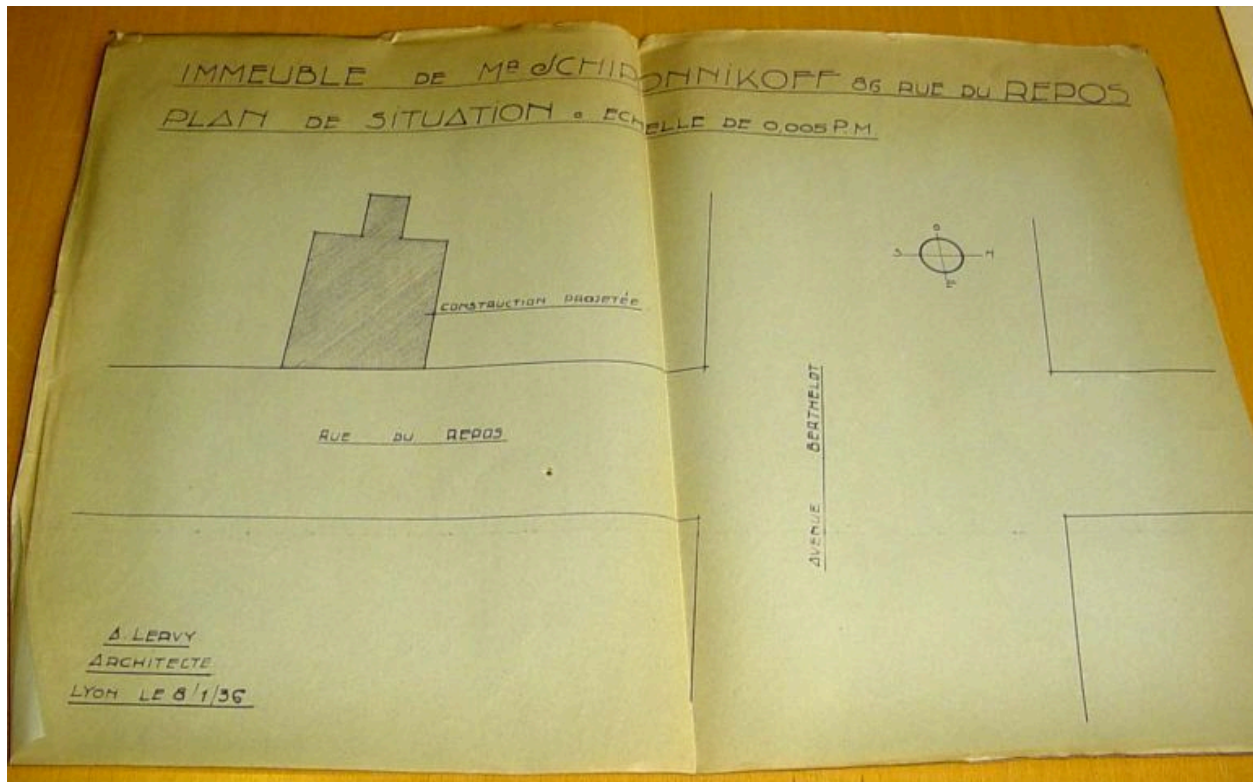 IMMEUBLE DE Mᴿ SCHIRONNIKOFF 86 RUE DU REPOS
PLAN DE SITUATION . ECHELLE DE 0,005 P.M.
O
S N
E
CONSTRUCTION PROJETÉE
AVENUE BERTHELOT
RUE DU REPOS
A. LERVY
ARCHITECTE
LYON LE 8/1/36